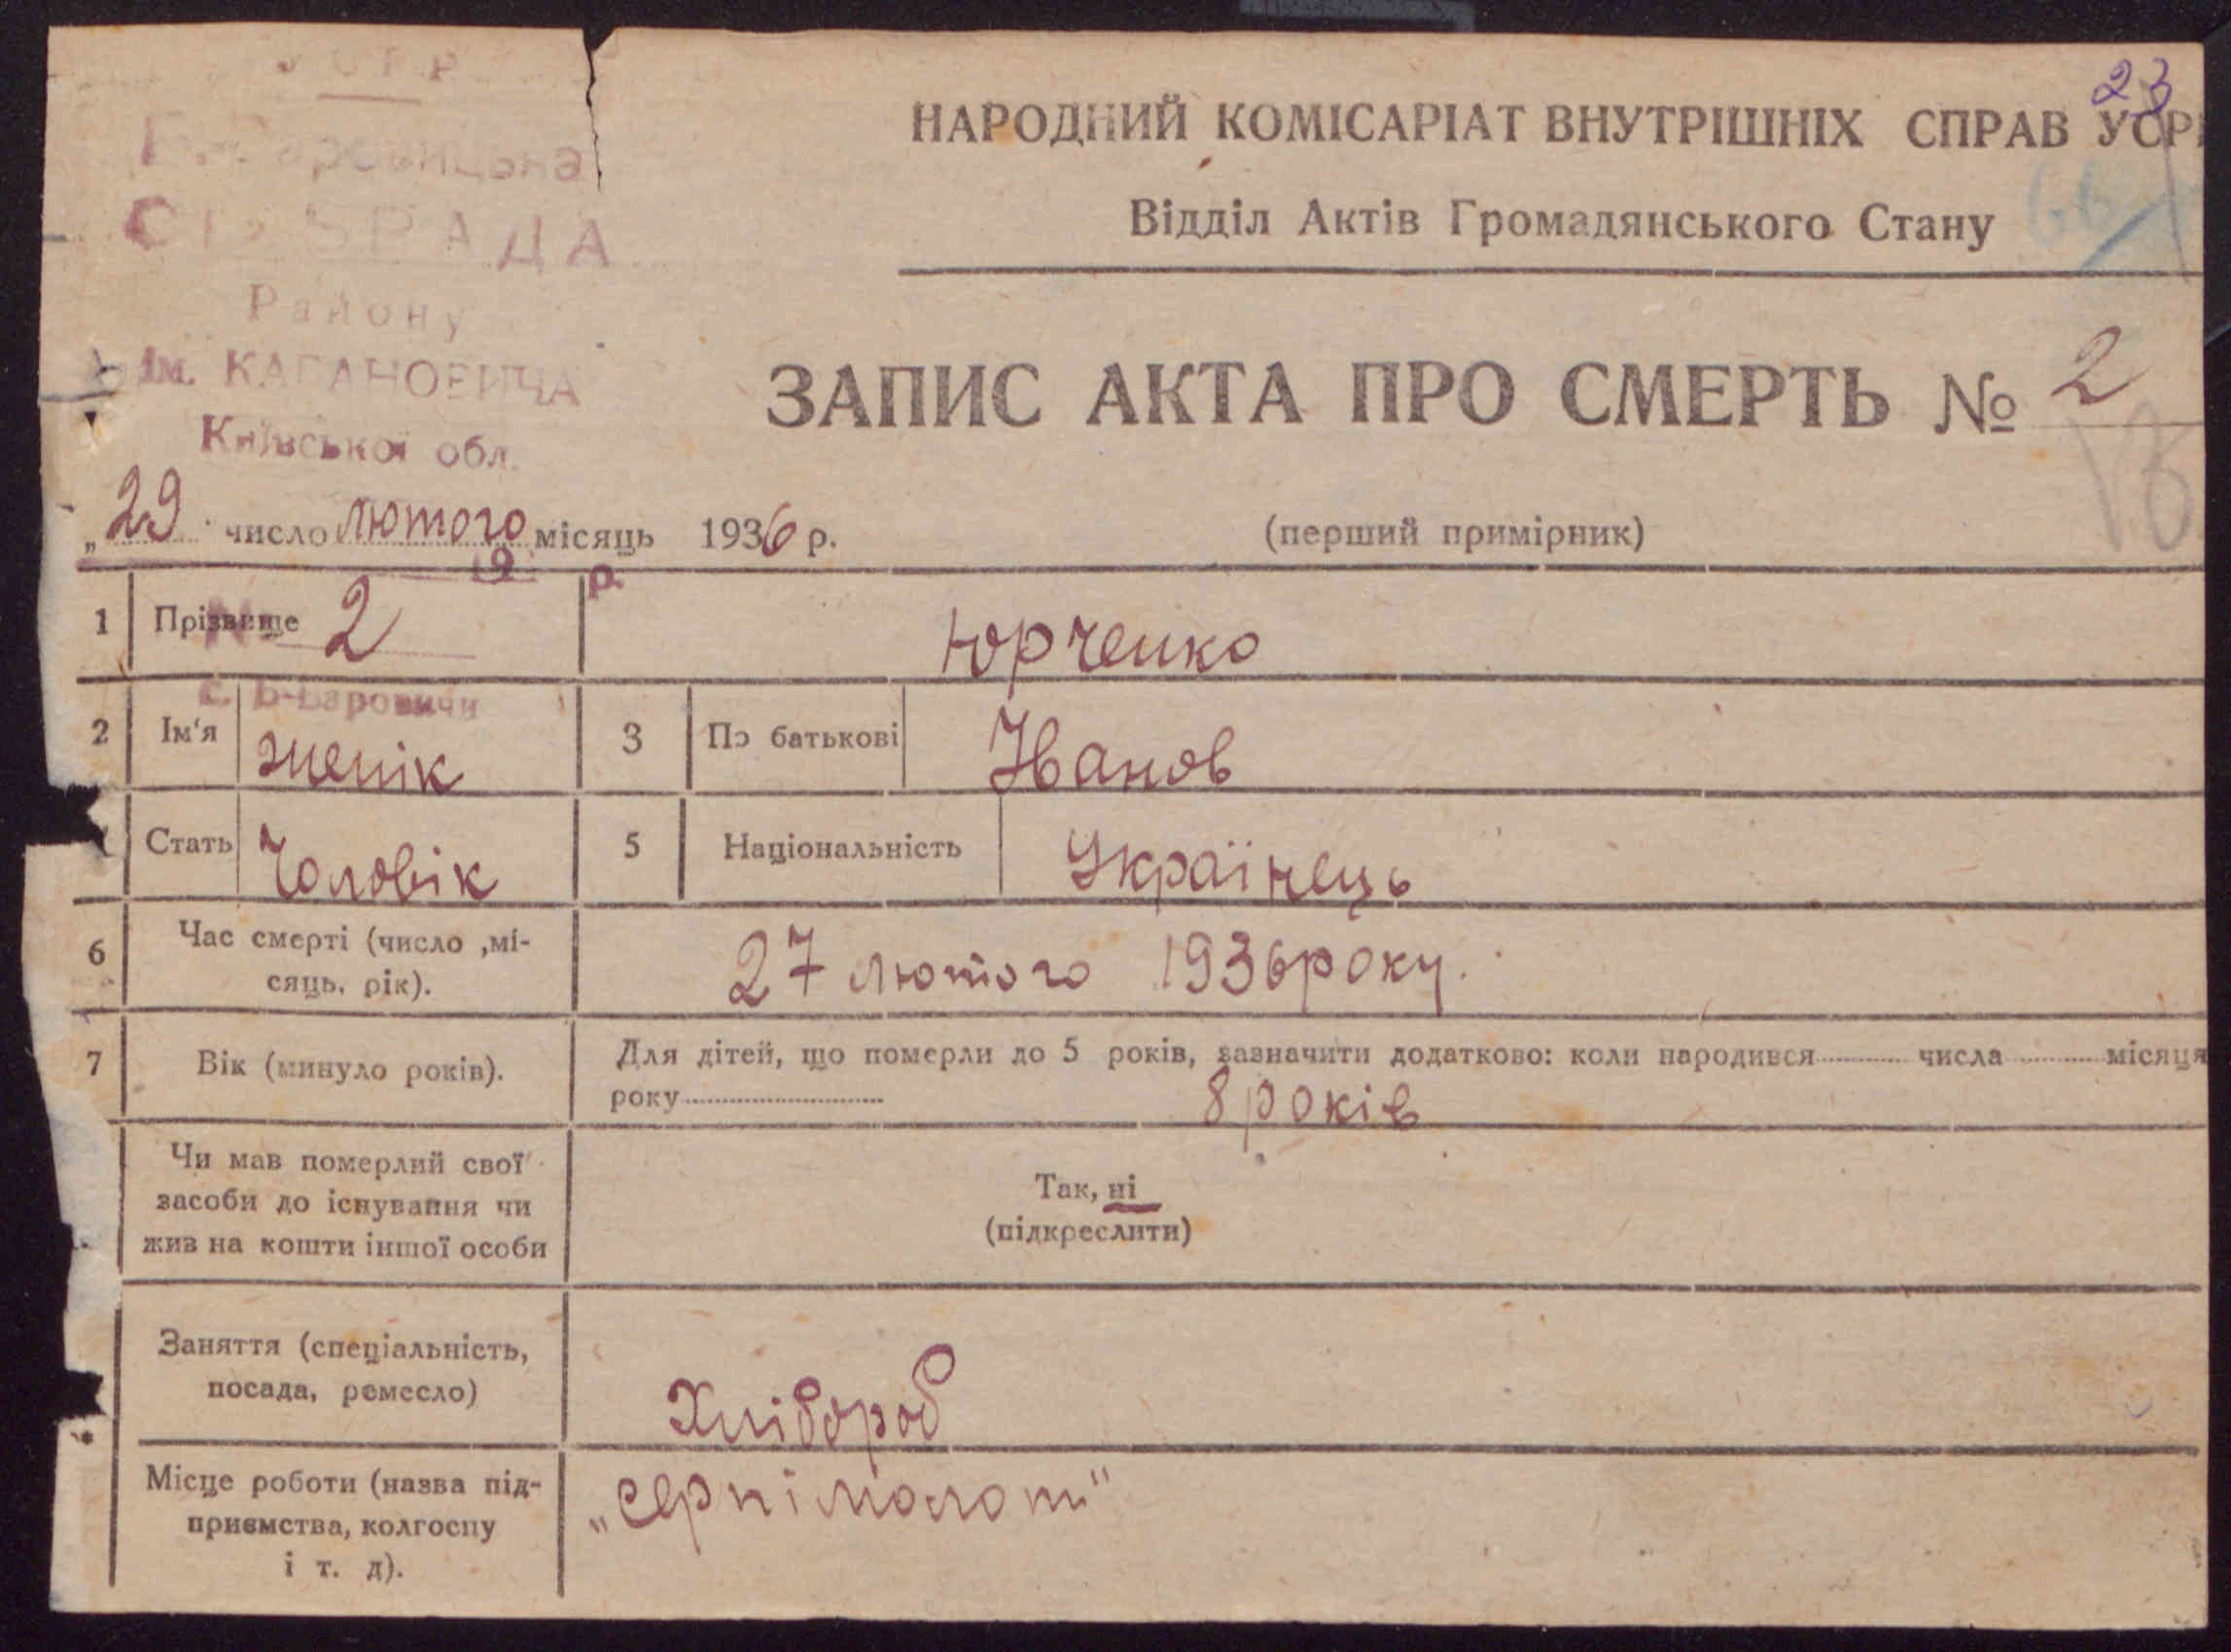 23
УСРР
НАРОДНИЙ КОМІСАРІАТ ВНУТРІШНІХ СПРАВ УСРР
Відділ Актів Громадянського Стану
СІЛЬРАДА
Району
Ім. КАГАНОВИЧА
Київської обл.
ЗАПИС АКТА ПРО СМЕРТЬ № 2
„29" число лютого місяць 1936 р.
(перший примірник)
19 р.
1 Прізвище 2 Юрченко
с. Б-Варовичи
2 Ім'я женік 3 По батькові Іванов
Стать Чоловік 5 Національність Українець
6 Час смерті (число ,мі-
сяць, рік). 27 лютого 1936 року.
7 Вік (минуло років). Для дітей, що померли до 5 років, зазначити додатково: коли народився числа місяця
року 8 років
Чи мав померлий свої
засоби до існування чи
жив на кошти іншої особи
Так, ні
(підкреслити)
Заняття (спеціальність,
посада, ремесло)
Хлібороб
Місце роботи (назва під-
приємства, колгоспу
і т. д).
„серпімолот"